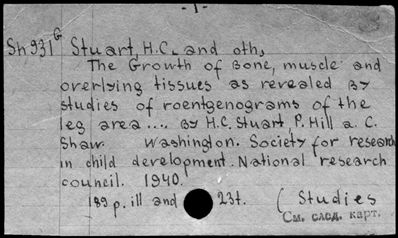 - 1 -
Sh 931 G Stuart, H.C. and oth.
The Growth of Bone, muscle and
overlying tissues as revealed By
studies of roentgenograms of the
leg area .... By H.C. Stuart, P. Hill a. C.
Shaw. Washington. Society for research
in child development. National research
council. 1940.
189 p. ill and 23t. ( Studies
См. след. карт.